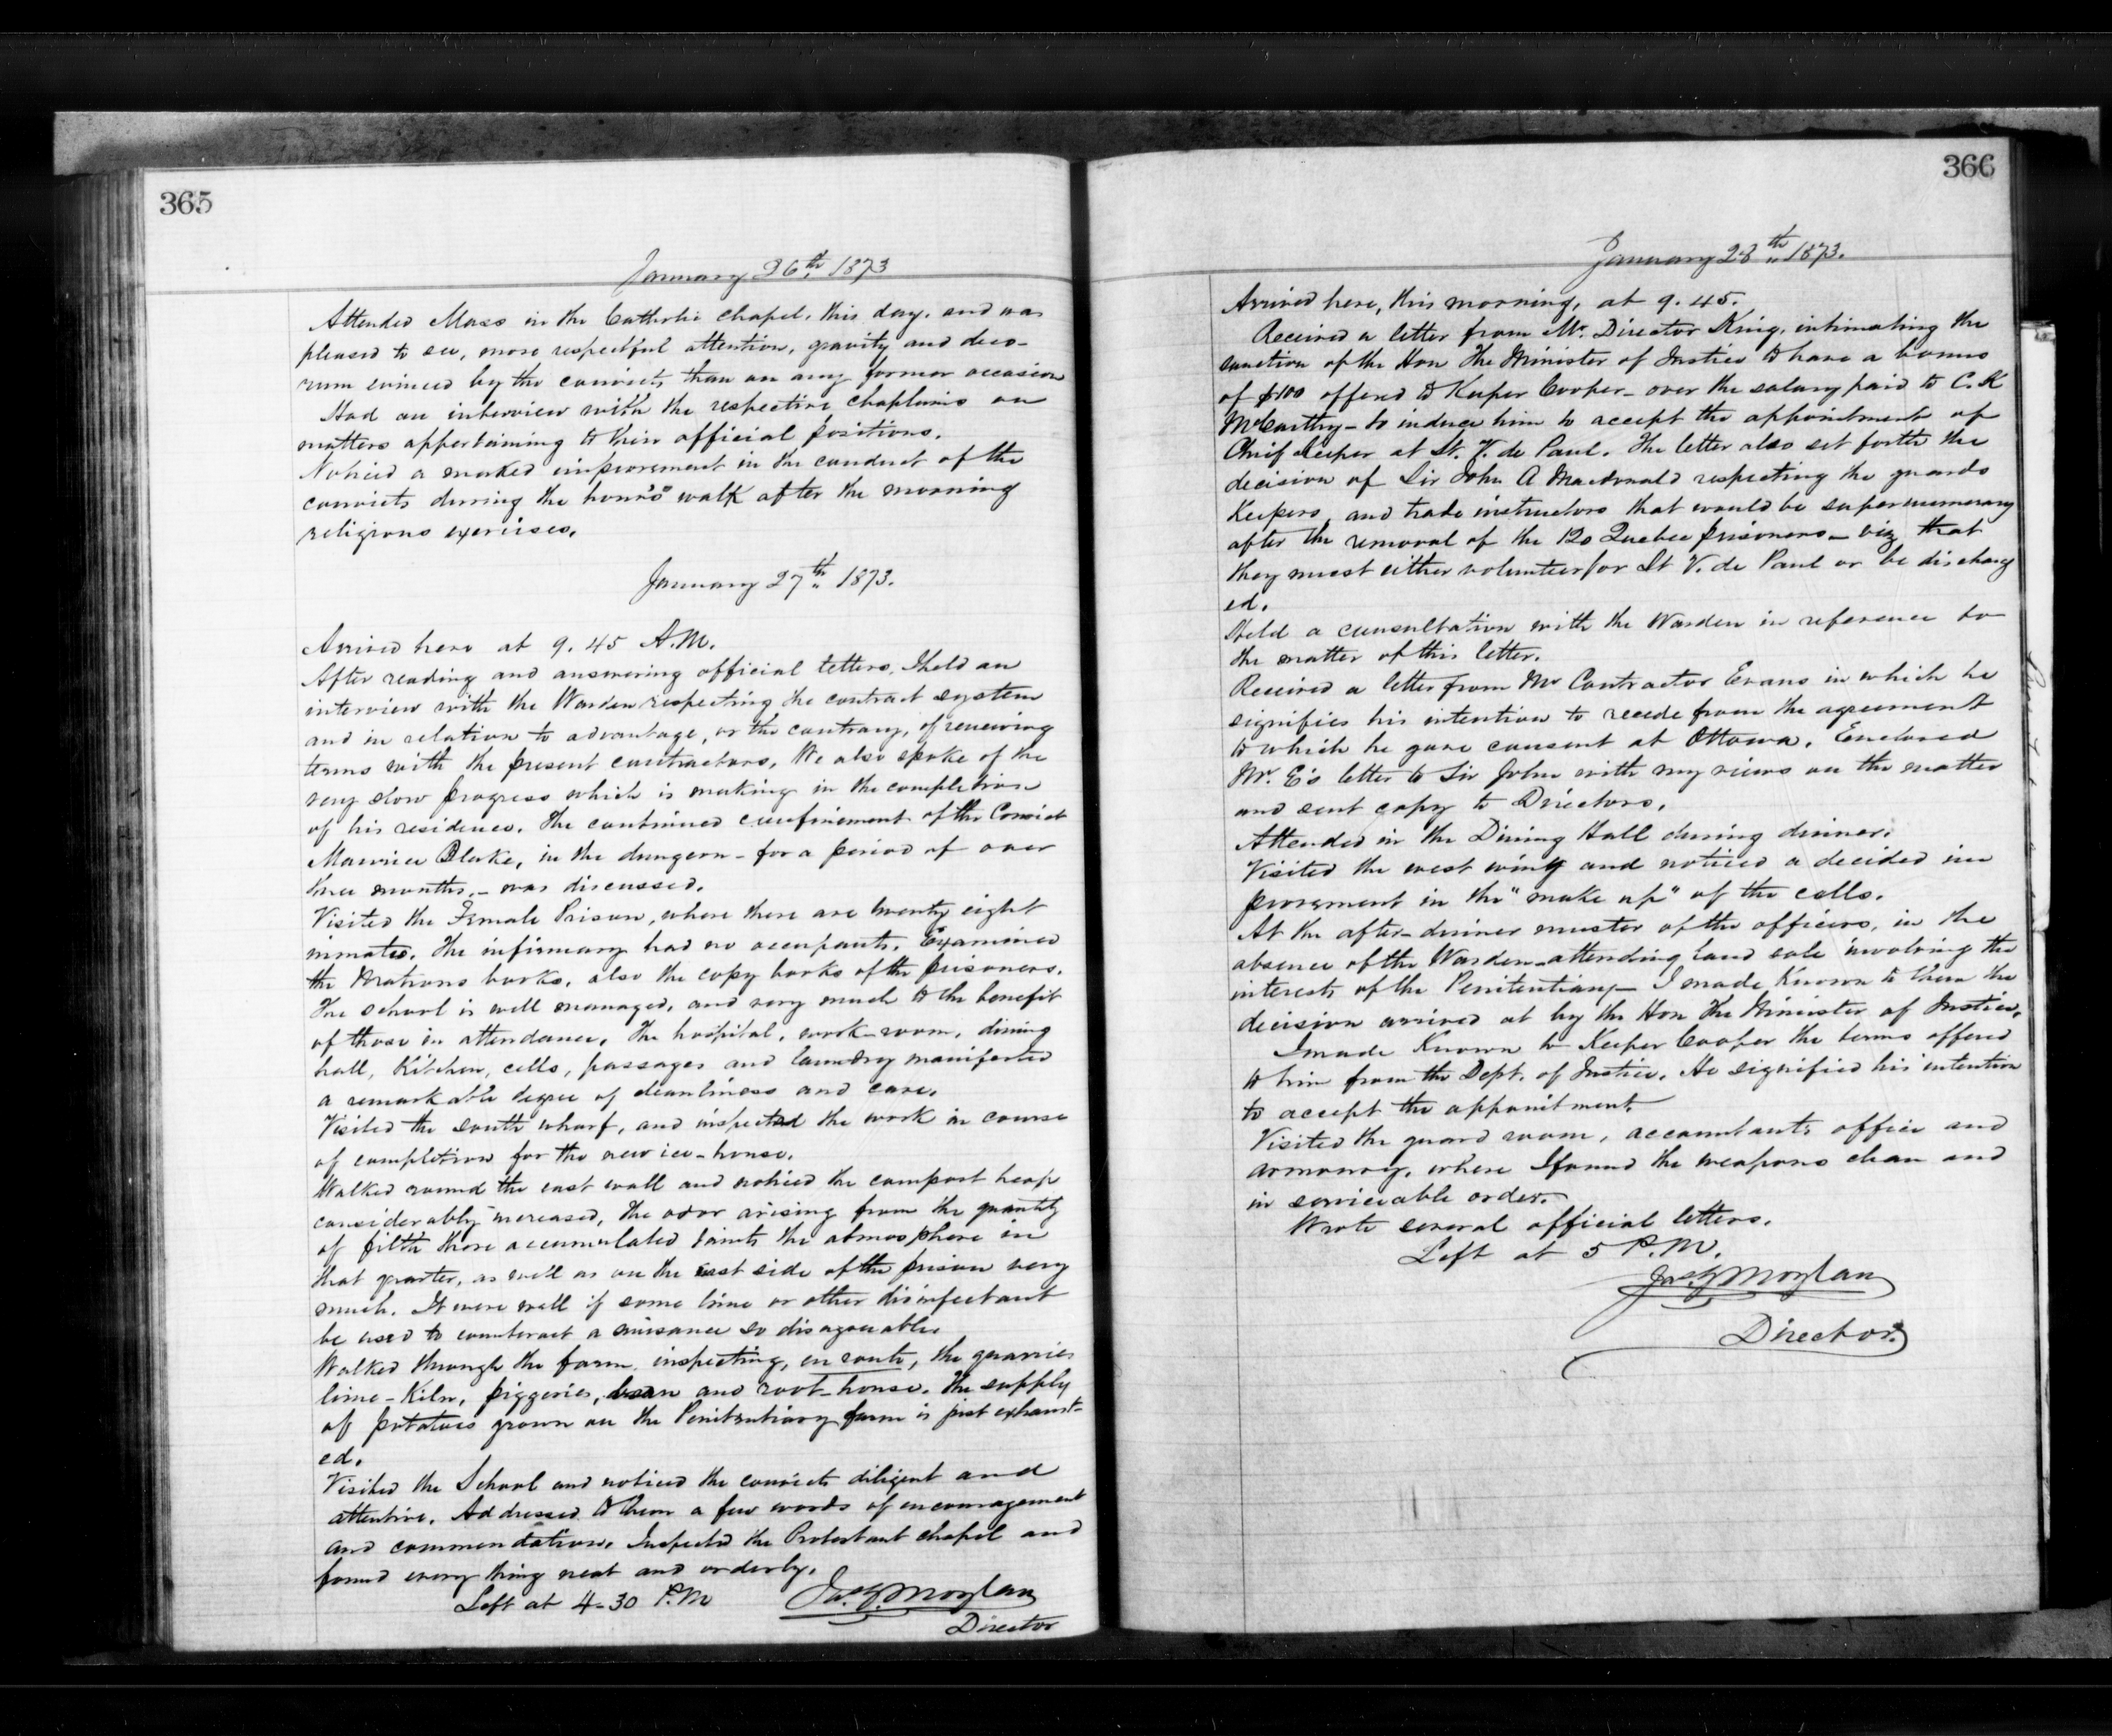 365
January 26th 1873
Attended Mass in the Catholic chapel, this day, and was
pleased to see, more respectful attention, gravity and deco-
rum evinced by the convicts than on any former occasion
Had an interview with the respective chaplains on
matters appertaining to their official positions.
Noticed a marked improvement in the conduct of the
convicts during the hour's walk after the morning
religious exercises.
January 27th 1873.
Arrived here at 9.45 A.M.
After reading and answering official letters, I held an
interview with the Warden respecting the contract system
and in relation to advantage, or the contrary, of renewing
terms with the present contractors. We also spoke of the
very slow progress which is making in the completion
of his residence. The continued confinement of the Convict
Maurice Blake, in the dungeon - for a period of over
three months. - was discussed.
Visited the Female Prison, where there are twenty eight
inmates. The infirmary had no occupants. Examined
the Matrons books, also the copy books of the prisoners.
The school is well managed, and very much to the benefit
of those in attendance. The hospital, work-room, dining
hall, Kitchen, cells, passages and laundry manifested
a remarkable degree of cleanliness and care.
Visited the south wharf, and inspected the work in course
of completion for the new ice-house.
Walked round the east wall and noticed the compost heap
considerably increased, the odor arising from the quantity
of filth there accumulated taints the atmosphere in
that quarter, as well as on the east side of the prison very
much. It were well if some lime or other disinfectant
be used to counteract a nuisance so disagreeable.
Walked through the farm, inspecting, en route, the quarries
lime-Kiln, piggeries, barn and root-house. The supply
of potatoes grown on the Penitentiary farm is just exhaust-
ed.
Visited the School and noticed the convicts diligent and
attentive. Addressed to them a few words of encouragement
and commendation. Inspected the Protestant chapel and
found every thing neat and orderly.
Left at 4-30 P.M Jas. G. Moylan
Director
366
January 28th 1873.
Arrived here, this morning, at 9.45.
Received a letter from Mr. Director King, intimating the
sanction of the Hon The Minister of Justice to have a bonus
of $100 offered to Keeper Cooper - over the salary paid to C. K
McCarthy - to induce him to accept the appointment of
Chief Keeper at St. V. de Paul. The letter also set forth the
decision of Sir John A Macdonald respecting the guards
Keepers, and trade instructors that would be supernumerary
after the removal of the 120 Quebec prisoners - viz that
they must either volunteer for St V. de Paul or be discharg
ed.
Held a consultation with the Warden in reference to
the matter of this letter.
Received a letter from Mr Contractor Evans in which he
signifies his intention to recede from the agreement
to which he gave consent at Ottawa. Enclosed
Mr. E's letter to Sir John with my views on the matter
and sent copy to Directors.
Attended in the Dining Hall during dinner.
Visited the west wing and noticed a decided im
provement in the "make up" of the cells.
At the after-dinner muster of the officers, in the
absence of the Warden - attending land sale involving the
interests of the Penitentiary - I made Known to them the
decision arrived at by the Hon The Minister of Justice.
I made Known to Keeper Cooper the terms offered
to him from the Dept. of Justice. He signified his intention
to accept the appointment.
Visited the guard room, accountants office and
armoury, where I found the weapons clean and
in serviceable order.
Wrote several official letters.
Left at 5 P.M.
Jas. G Moylan
Director.